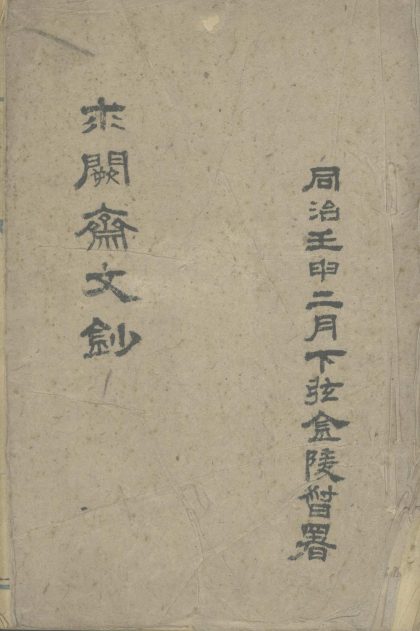 同治壬申二月下弦金陵督署
求闕齋文鈔